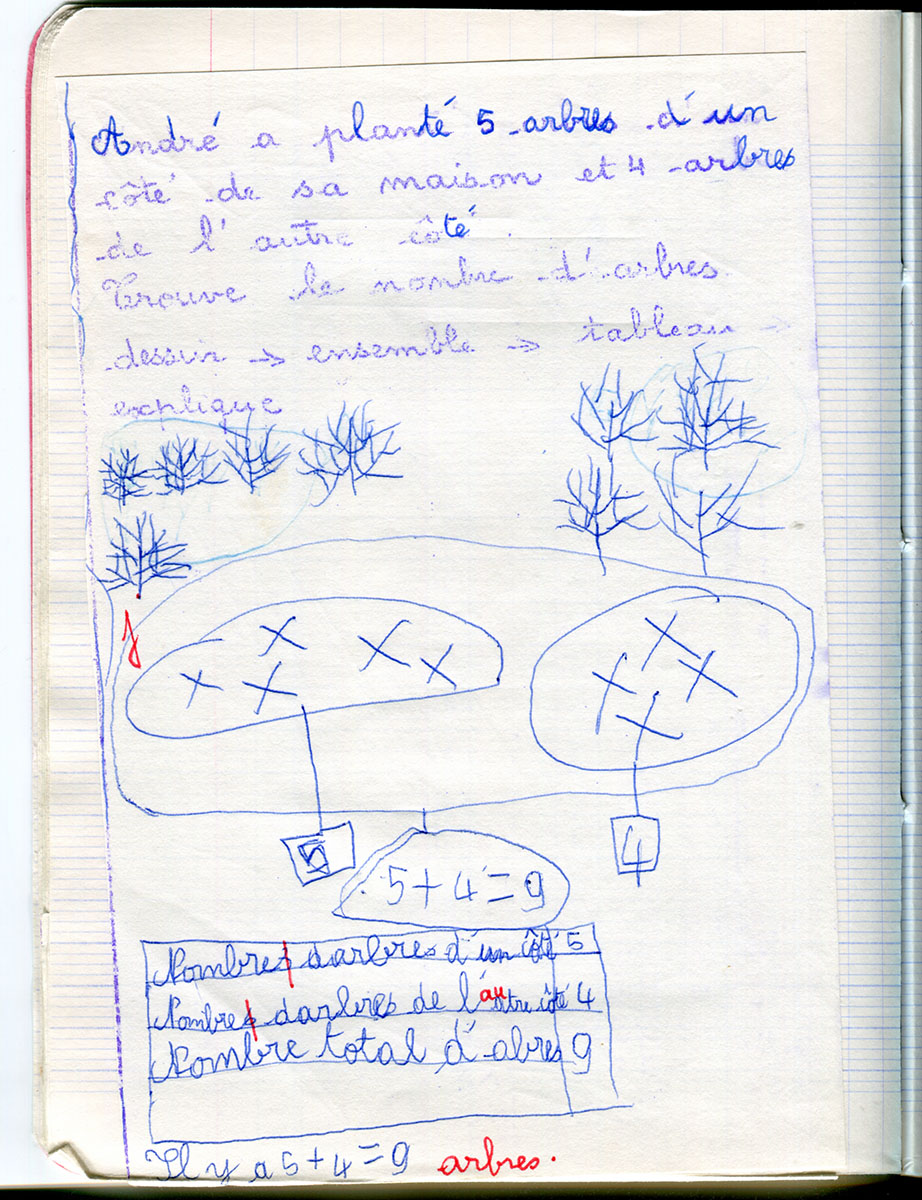 André a planté 5 arbres d'un
côté de sa maison et 4 arbres
de l'autre côté.
Trouve le nombre d'arbres.
dessin → ensemble → tableau →
explique
5
4
5+4=9
Nombres darbres d'un côté 5
Nombres darbres de l'autre côté 4
Nombre total d'abres 9
Il y a 5+4=9 arbres.